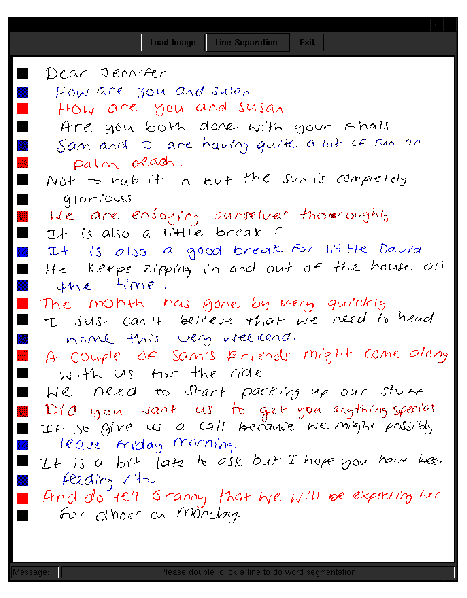 Load Image Line Separation Exit
Dear Jennifer
How are you and Susan
How are you and Susan
Are you both done with your finals
Sam and I are having quite a bit of fun on
Palm Beach.
Not to rub it in but the sun is completely
glorious
We are enjoying ourselves thoroughly
It is also a little break
It is also a good break for little David
He keeps zipping in and out of the house all
the time.
The month has gone by very quickly
I just can't believe that we need to head
home this very weekend.
A couple of Sam's friends might come along
with us for the ride
We need to start packing up our stuff
Did you want us to get you anything special
If so give us a call because we might possibly
leave Friday morning.
It is a bit late to ask but I hope you have been
feeding
And do tell Granny that we will be expecting her
for dinner on Monday
Message: Please double click a line to do word segmentation